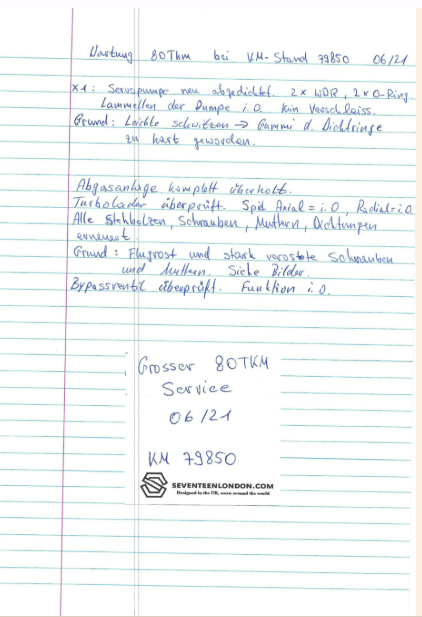 Wartung 80Tkm bei KM-Stand 79850 06/21
x1: Servopumpe neu abgedichtet. 2x WDR, 2x O-Ring
Lammellen der Pumpe i.O. kein Verschleiss.
Grund: Leichte schwitzen → Gummi d. Dichtringe
zu hart geworden.
Abgasanlage komplett überholt.
Turbolader überprüft. Spiel Axial = i.O, Radial = i.O
Alle Stehbolzen, Schrauben, Muttern, Dichtungen
erneuert.
Grund: Flugrost und stark verostete Schrauben
und Muttern. Siehe Bilder.
Bypassventil überprüft. Funktion i.O.
Grosser 80TKM
Service
06/21
KM 79850
SEVENTEENLONDON.COM
Designed in the UK, worn around the world